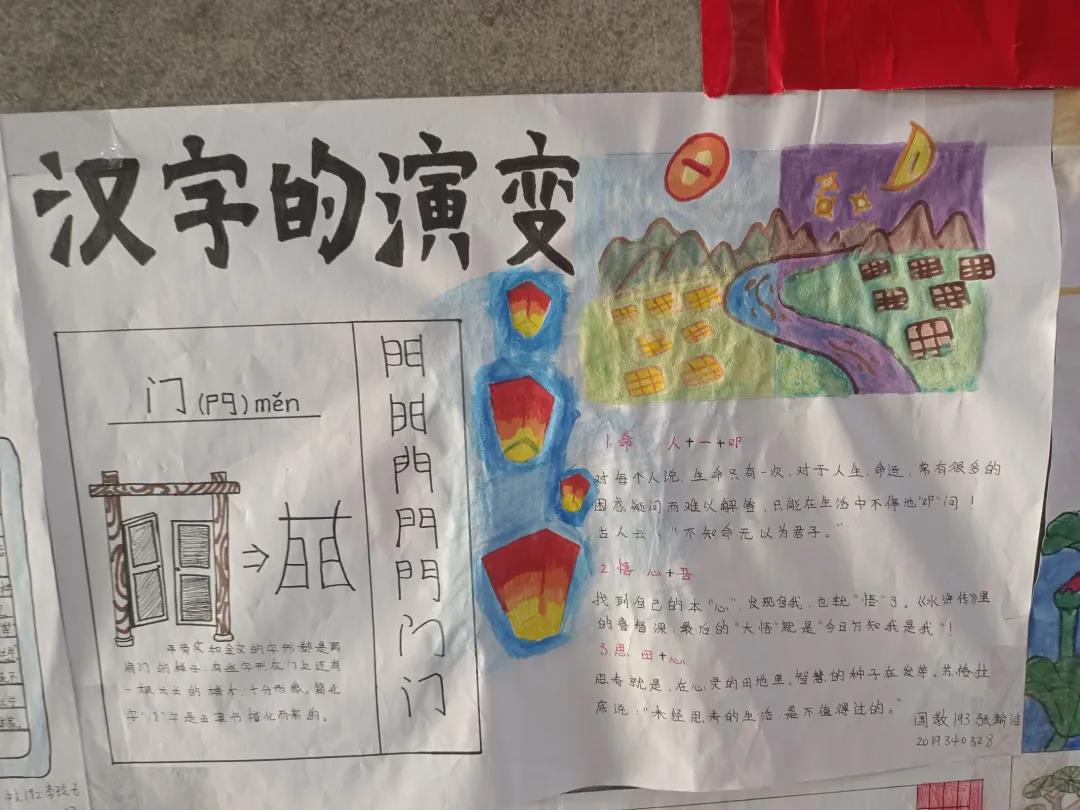 汉字的演变
门(門)mén
門
門
門
門
門
门
门
甲骨文和金文的字形都是两
扇门的样子，有些字形在门上还有
一根长长的横木，十分形象。简化
字“门”字是由草书楷化而来的。
1.命 人+一+叩
对每个人说，生命只有一次，对于人生、命运，常有很多的
困惑疑问而难以解答，只能在生活中不停地“叩”问！
古人云：“不知命无以为君子。”
2.悟 心+吾
找到自己的本“心”，发现自我，也就“悟”了。《水浒传》里
的鲁智深，最后的“大悟”就是“今日方知我是我”！
3.思 田+心
思考就是，在心灵的田地里，智慧的种子在发芽。苏格拉
底说：“未经思考的生活，是不值得过的。”
国教193 张瀚
2019340328